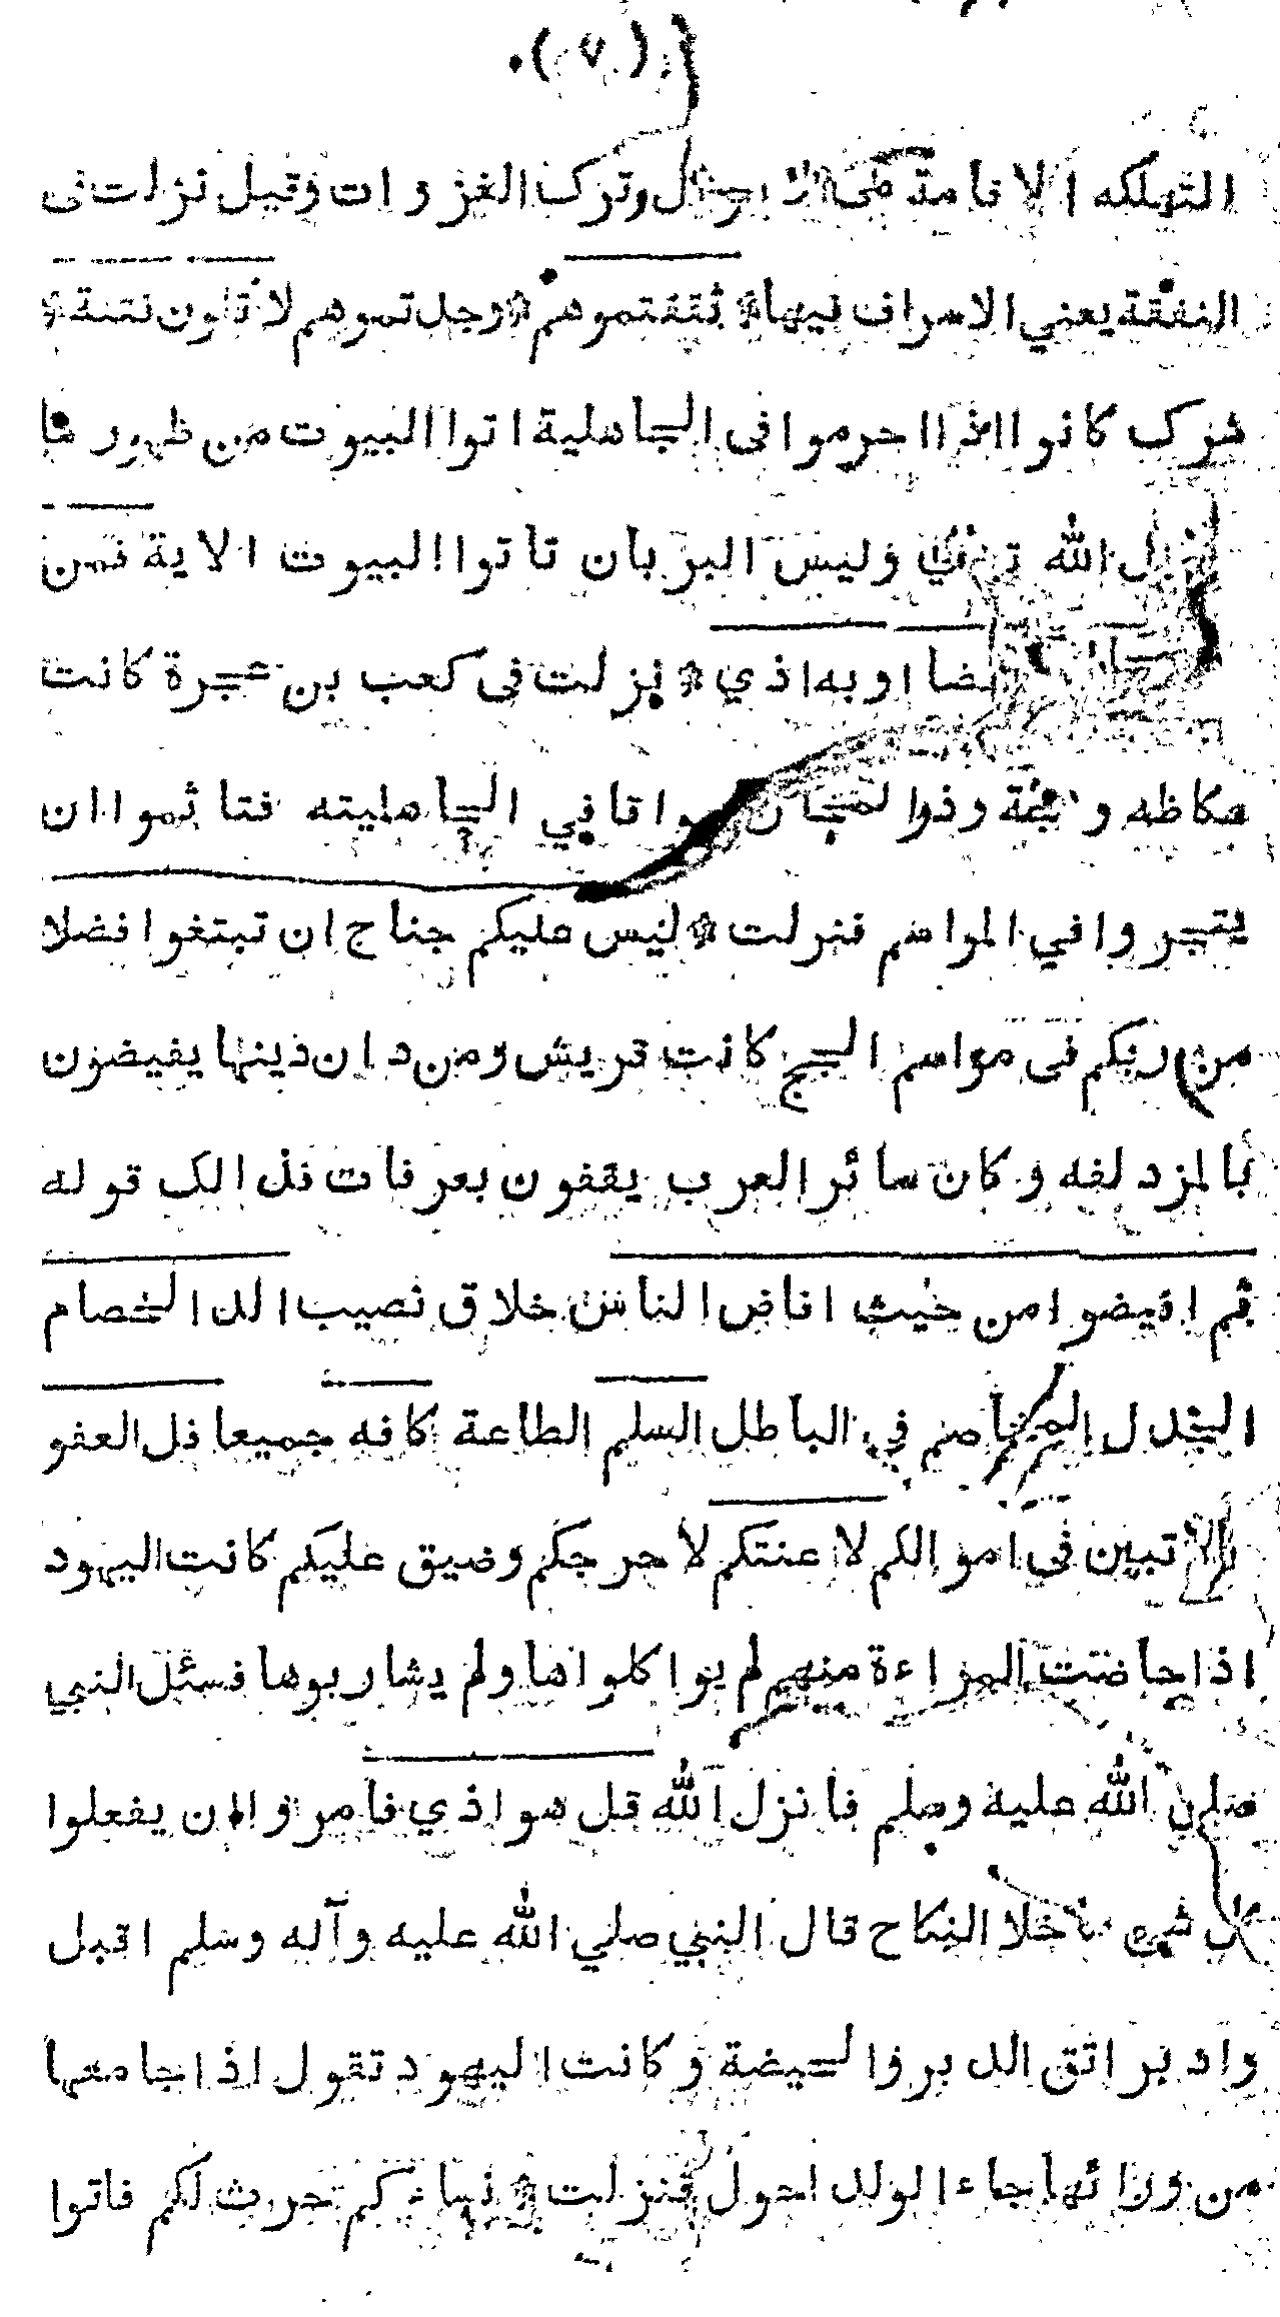 (٧)
التهلكه الاقامة في الا موال وترك الغزوات وقيل نزلت فى
النفقة يعني الاسراف فيها ۞ ثقفتموهم ۞ وجد تموهم لا تكون فتنة ۞
شرك كانوا اذا احرموا فى الجاهلية اتوا البيوت من ظهورها
الله وليس البر بان تأتوا البيوت الاية فمن
اوبه اذي ۞ نزلت فى كعب بن عجرة كانت
عكاظه و مجنة وذوا لمجان سواقا في الجاهليته فتاثموا ان
يتجروا في المواسم فنزلت ۞ ليس عليكم جناح ان تبتغوا فضلا
من ربكم فى مواسم الحج كانت قريش ومن دان دينها يفيضون
بالمزدلفه وكان سائر العرب يقفون بعرفات فذ الک قوله
ثم افيضوا من حيث افاض الناس خلاق نصيب الد الخصام
الجدل المخاصم في الباطل السلم الطاعة كافه جميعا قل العفو
تبين في اموالكم لا عنتكم لا حرجكم وضيق عليكم كانت اليهود
اذا حاضت المراءة منهم لم يوا كلواها ولم يشاربوها فسئل النبي
صلى الله عليه وسلم فانزل الله قل هو اذي فامروا ان يفعلوا
كل شى ماخلا النكاح قال النبي صلي الله عليه وآله وسلم اقبل
وادبر اتق الدبر والحيضة وكانت اليهود تقول اذا جامعها
من ورائها جاء الولد احول فنزلت ۞ نساءكم حرث لكم فاتوا